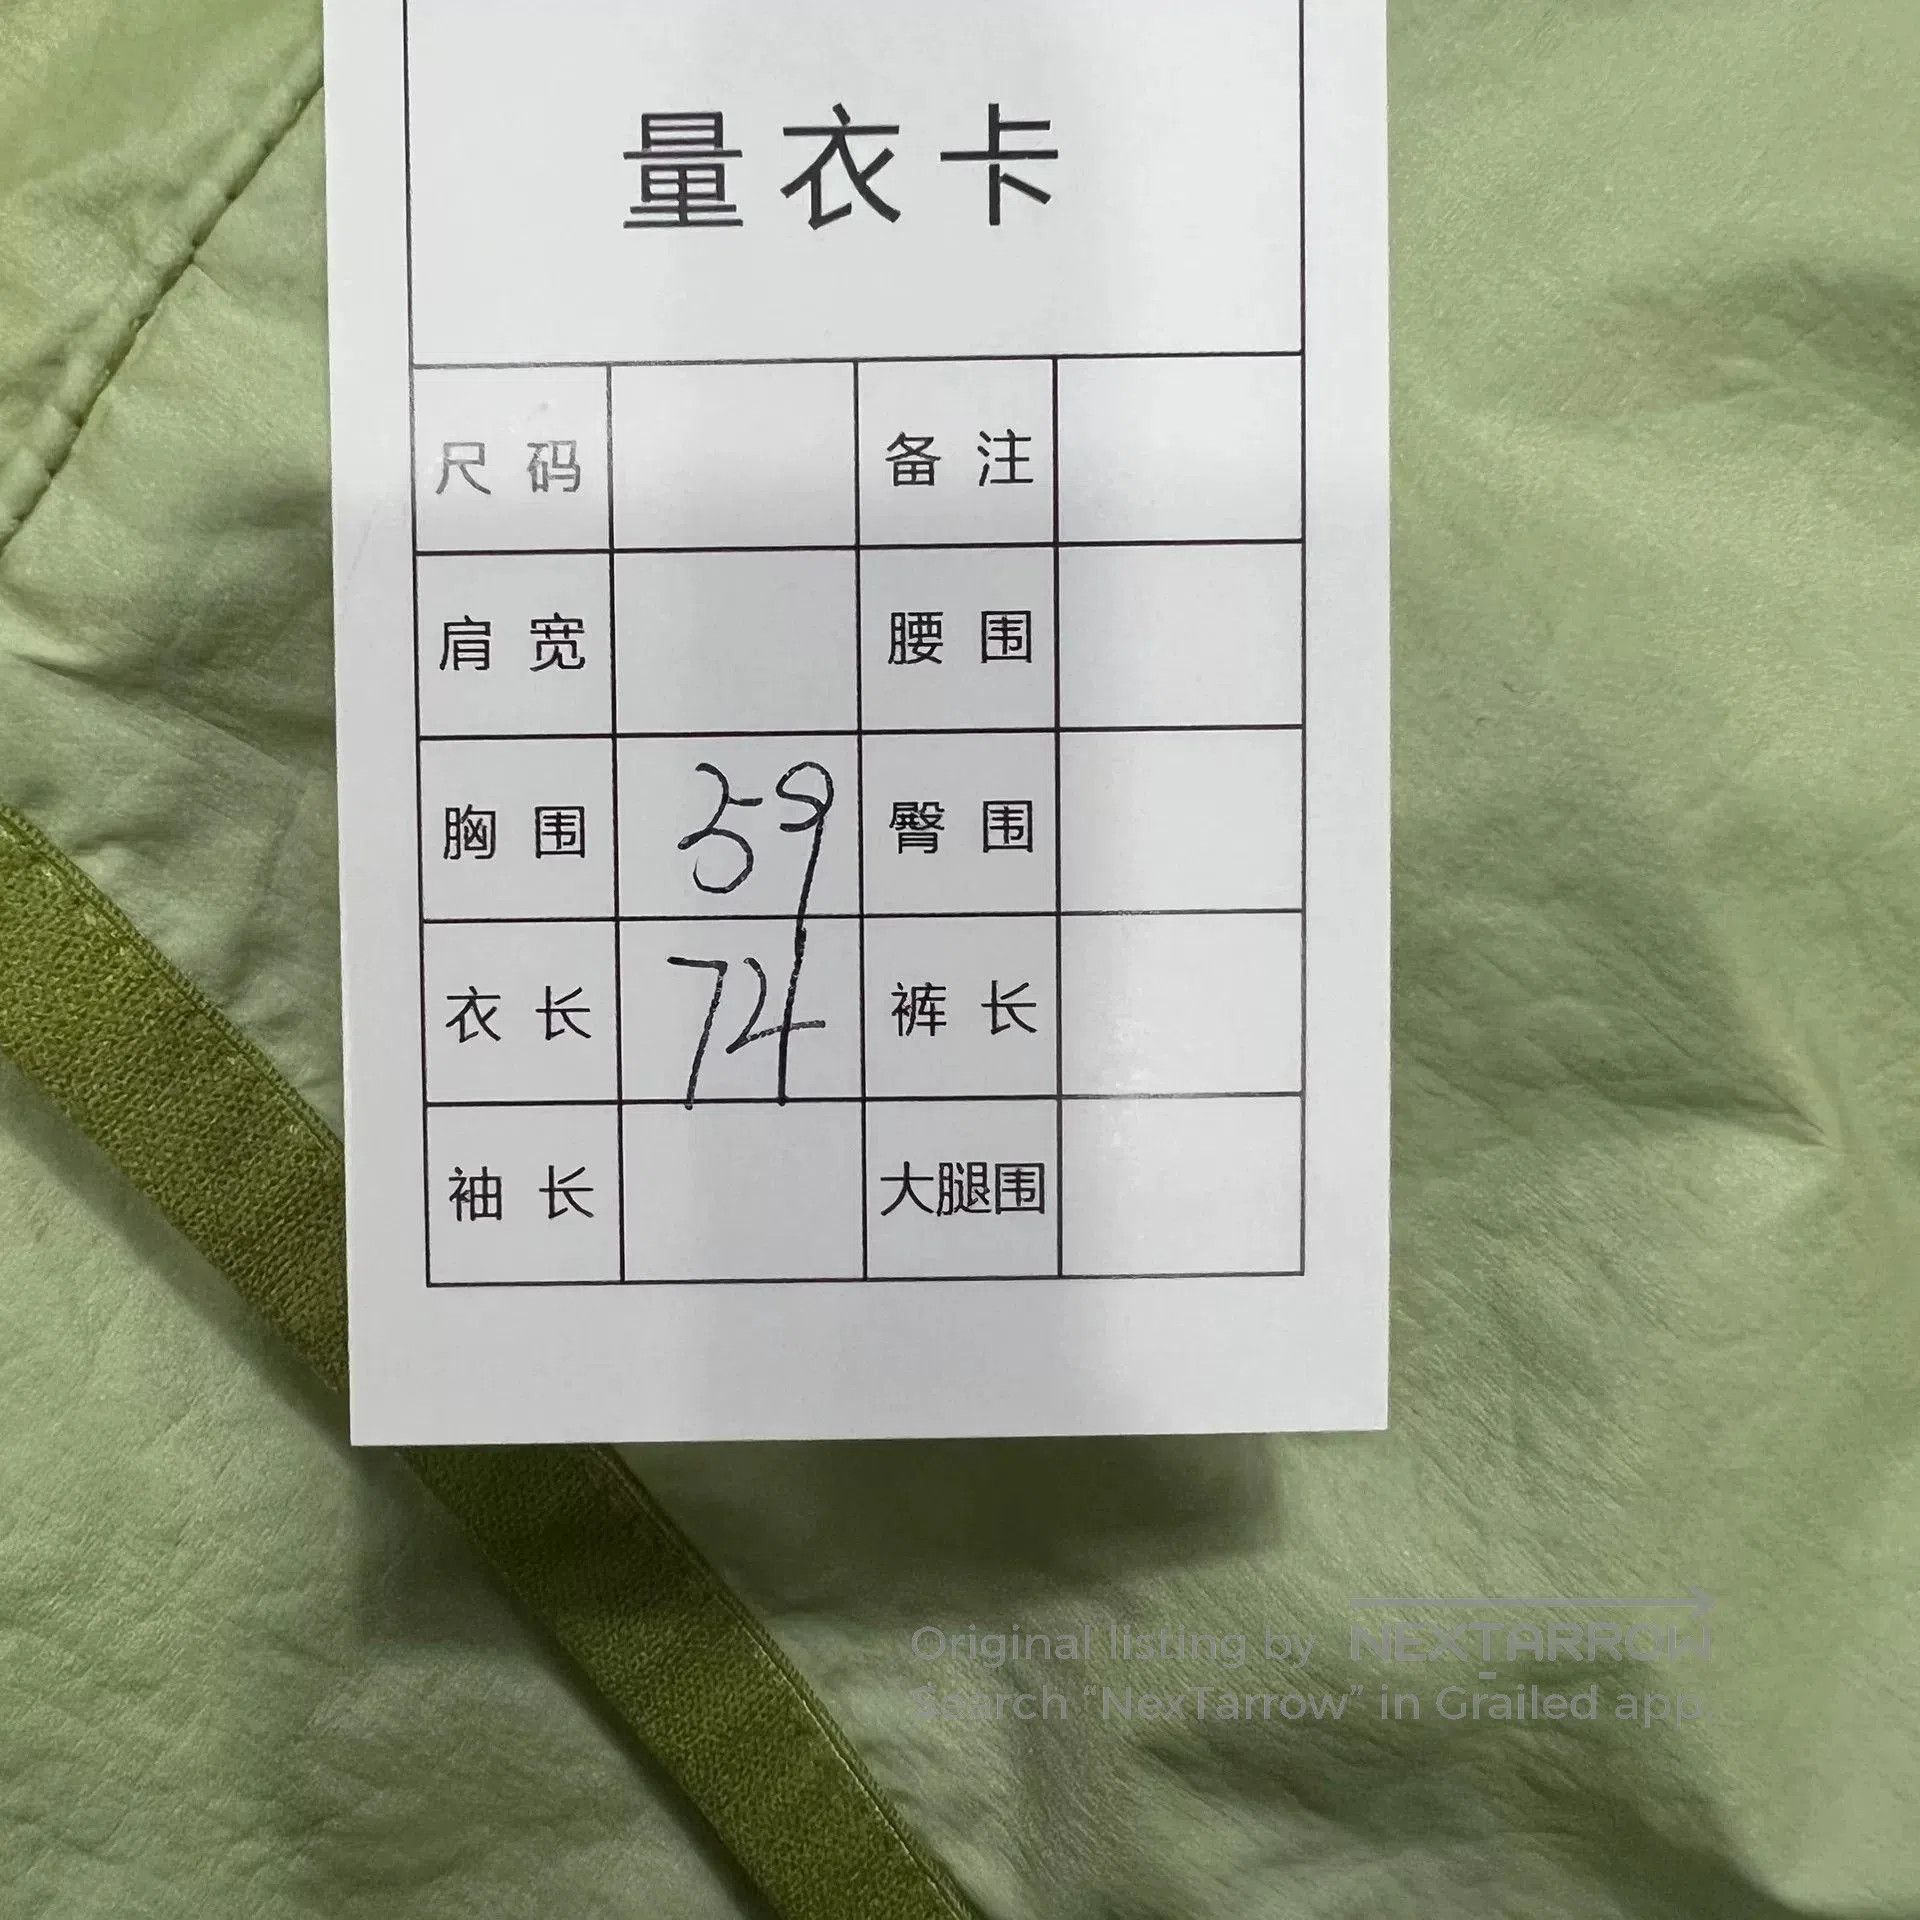 量衣卡
尺码 备注
肩宽 腰围
胸围 59 臀围
衣长 74 裤长
袖长 大腿围
Original listing by NEXTARROW
Search “NexTarrow” in Grailed app.